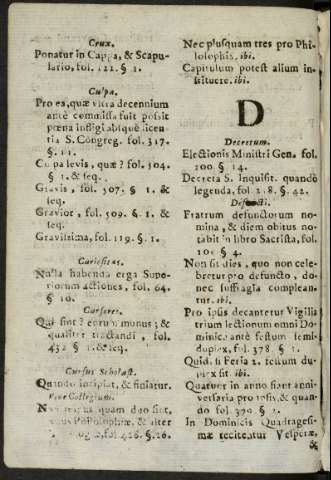 Crux.
Ponatur in Cappa, & Scapu-
lario, fol. 122. § 1.
Culpa.
Pro ea, quæ vltra decennium
antè commissa fuit possit
pœna infligi absque licen-
tia S. Congreg. fol. 317.
§. 11.
Culpa levis, quæ? fol. 504.
§ 1. & seq.
Gravis, fol. 507. § 1. &
seq.
Gravior, fol. 509. §. 1. &
seq.
Gravissima, fol. 119. §. 1.
Curiositas.
Nulla habenda erga Supe-
riorum actiones, fol. 64.
§ 10.
Cursores.
Qui sint? eorum munus; &
qualiter tractandi, fol.
432 § 1. & seq.
Cursus Scholast.
Quando incipiat, & finiatur.
Vide Collegium.
Non sit quam duo sint,
vnus Philosophiæ, & alter
fol. 428. §. 16.
Nec plusquam tres pro Phi-
losophia. ibi.
Capitulum potest alium in-
stituere. ibi.
D
Decretum.
Electionis Ministri Gen. fol.
200 § 14.
Decreta S. Inquisit. quando
legenda, fol. 218. §. 42.
Defuncti.
Fratrum defunctorum no-
mina, & diem obitus no-
tabit in libro Sacrista, fol.
101 § 4.
Non sit dies, quo non cele-
bretur pro defuncto, do-
nec suffragia complean-
tur. ibi.
Pro ipsis decantetur Vigilia
trium lectionum omni Do-
minica antè festum semi-
duplex, fol. 378. § 1.
Quid, si Feria 2. festum du-
plex sit. ibi.
Quater in anno fient anni-
versaria pro ipsis, & quan-
do fol. 379. § 2.
In Dominicis Quadragesi-
mæ recitentur Vesperæ,
&